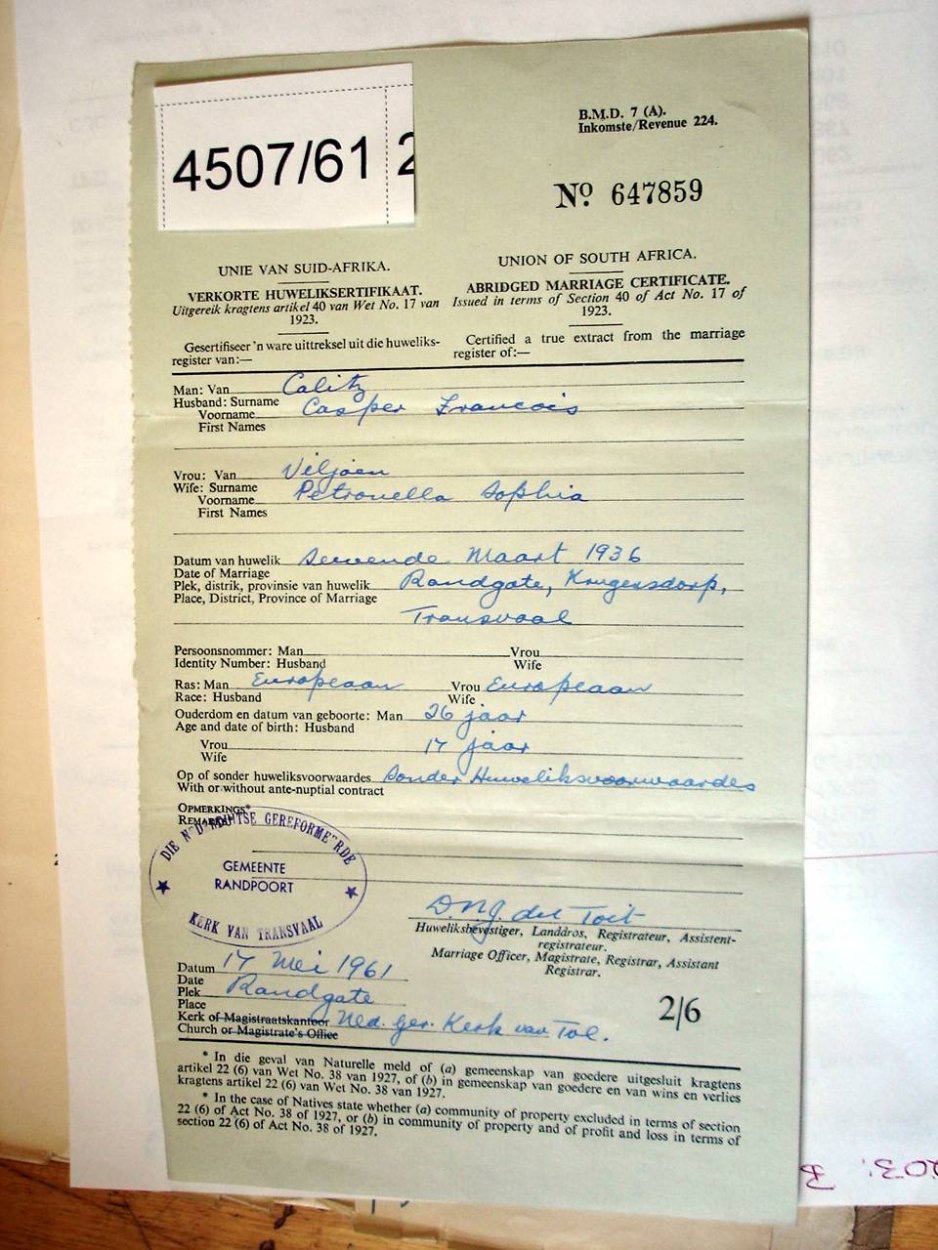 4507/61 2
B.M.D. 7 (A).
Inkomste/Revenue 224.
No. 647859
UNIE VAN SUID-AFRIKA.
VERKORTE HUWELIKSERTIFIKAAT.
Uitgereik kragtens artikel 40 van Wet No. 17 van
1923.
Gesertifiseer 'n ware uittreksel uit die huweliks-
register van:—
UNION OF SOUTH AFRICA.
ABRIDGED MARRIAGE CERTIFICATE.
Issued in terms of Section 40 of Act No. 17 of
1923.
Certified a true extract from the marriage
register of:—
Man: Van Calitz
Husband: Surname
Voorname Casper Francois
First Names
Vrou: Van Viljoen
Wife: Surname
Voorname Petronella Sophia
First Names
Datum van huwelik Sewende Maart 1936
Date of Marriage
Plek, distrik, provinsie van huwelik Randgate, Krugersdorp,
Place, District, Province of Marriage
Transvaal
Persoonsnommer: Man Vrou
Identity Number: Husband Wife
Ras: Man Europeaan Vrou Europeaan
Race: Husband Wife
Ouderdom en datum van geboorte: Man 26 jaar
Age and date of birth: Husband
Vrou 17 jaar
Wife
Op of sonder huweliksvoorwaardes Sonder Huweliksvoorwaardes
With or without ante-nuptial contract
OPMERKINGS*
REMARKS*
DIE NED GEREFORMEERDE
GEMEENTE
RANDPOORT
KERK VAN TRANSVAAL
du Toit
Huweliksbevestiger, Landdros, Registrateur, Assistent-
registrateur.
Marriage Officer, Magistrate, Registrar, Assistant
Registrar.
Datum 17 Mei 1961
Date
Plek Randgate
Place
2/6
Kerk of Magistraatskantoor Ned. Ger. Kerk van Tvl.
Church or Magistrate's Office
* In die geval van Naturelle meld of (a) gemeenskap van goedere uitgesluit kragtens
artikel 22 (6) van Wet No. 38 van 1927, of (b) in gemeenskap van goedere en van wins en verlies
kragtens artikel 22 (6) van Wet No. 38 van 1927.
* In the case of Natives state whether (a) community of property excluded in terms of section
22 (6) of Act No. 38 of 1927, or (b) in community of property and of profit and loss in terms of
section 22 (6) of Act No. 38 of 1927.